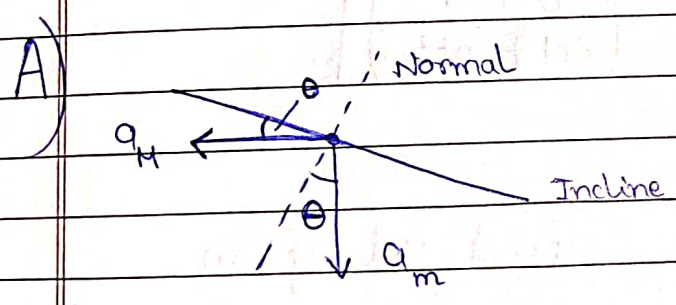 A)
Normal
θ
a_M
Incline
θ
a_m